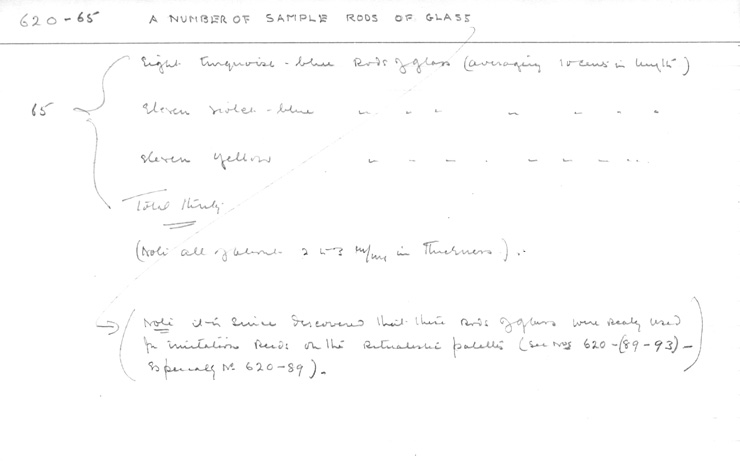 620-65 A NUMBER OF SAMPLE RODS OF GLASS
Eight turquoise-blue Rods of glass (averaging 10 cms in length)
65 Eleven violet-blue " " " " " " "
Eleven yellow " " " " " " "
Total thirty
(Note all of about 2 to 3 m/m in thickness).
→ (Note it is since discovered that these rods of glass were really used
for imitation Reeds on the Ritualistic palettes (see Nos 620-(89-93)-
Especially No 620-89).